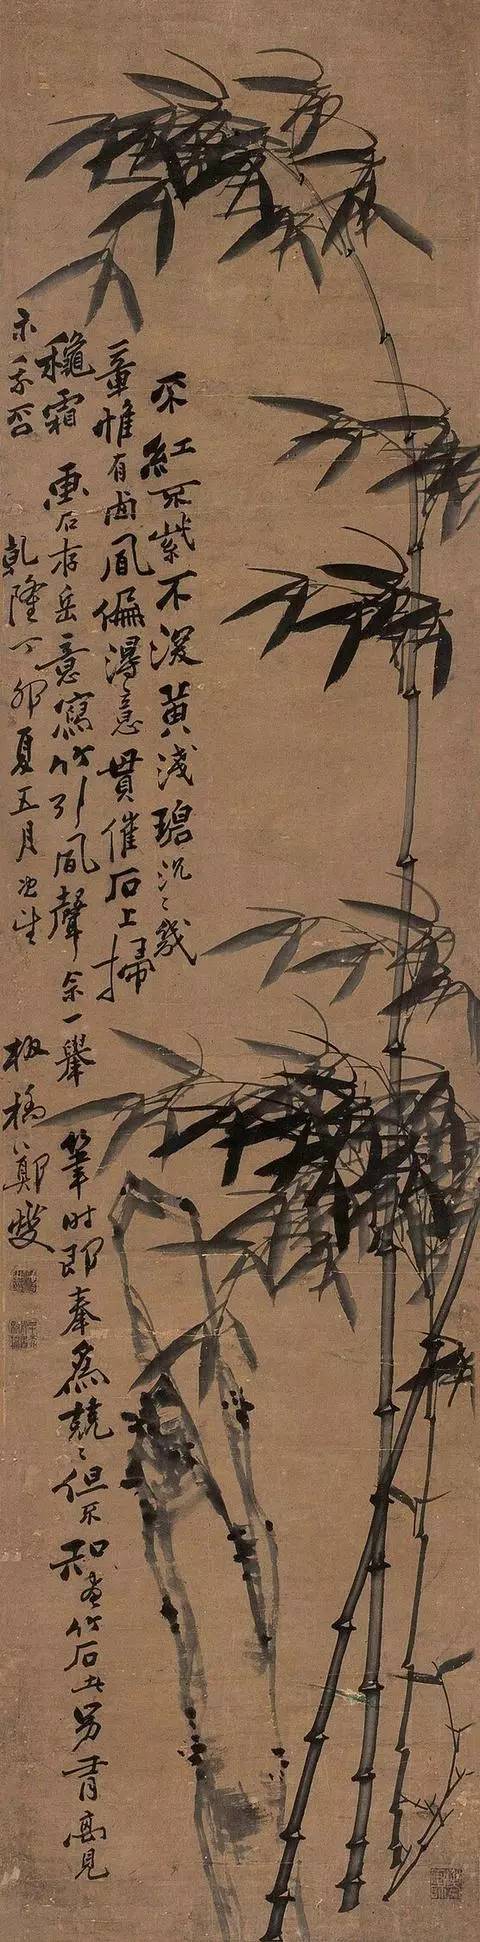 不紅不紫不深黄淺碧沉〻幾
惟有西風偏得意貫催石上掃
穐霜 画石存岳意寫竹引風聲余一舉筆時即奉爲兢〻但不知畫竹石者另有高見
示我否 乾隆丁卯夏五月 板橋鄭燮